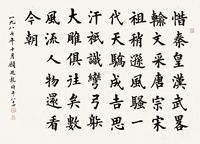 惜秦皇漢武畧
輸文采唐宗宋
祖稍遜風騷一
代天驕成吉思
汗祇識彎弓射
大雕俱往矣數
風流人物還看
今朝
一九八七年十月